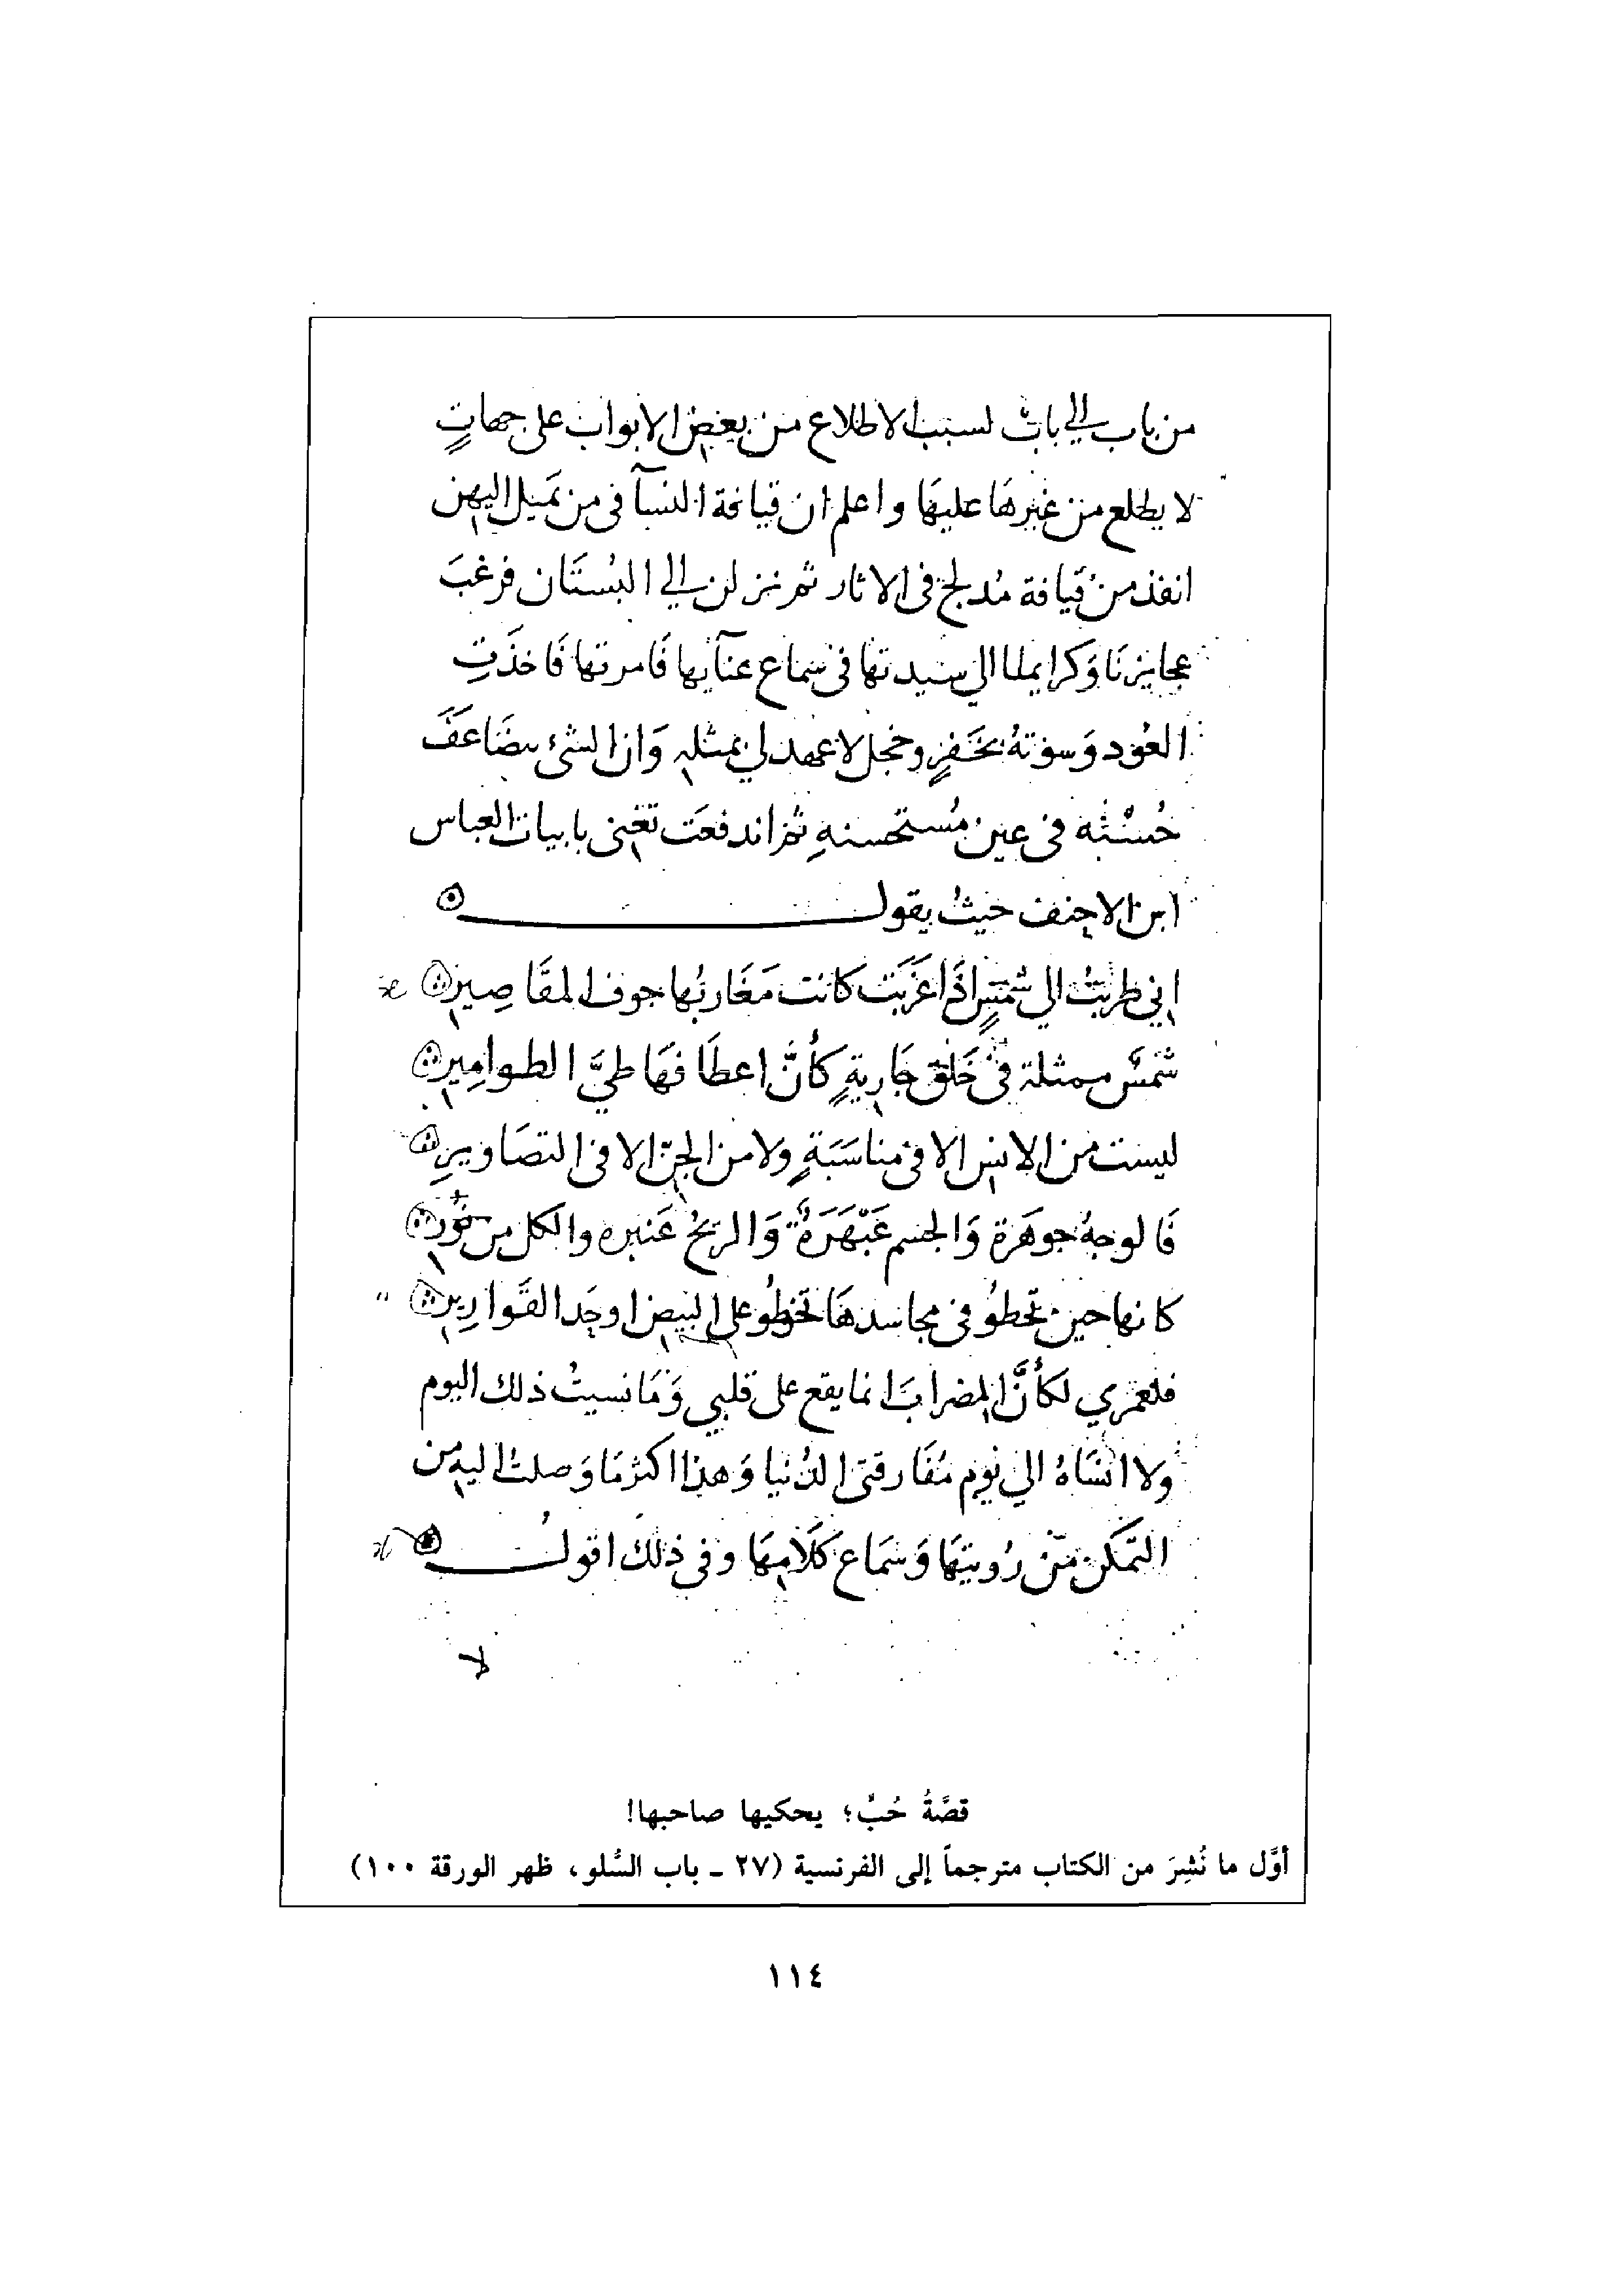 من باب الي باب لسبب الاطلاع من بعض الابواب على جهاتٍ
لا يطلع من غيرهَا عليهَا واعلم ان قيافة النسآ في من يَميل اليهن
انفذ من قيافة مُدلج في الاثار ثم نزلن الي البُستَان فرغبَ
عجايزنَا وَكرايمنا الي سيدتها في سماع غنآيها فَامرتها فَاخذَتِ
العُود وَسوتهُ بخَفرٍ وخجل لا عهد لي بمثله وَان الشئ يتضَاعَفَ
حُسْنُه في عين مُستحسنهِ ثم اندفعَت تغني بابيات العباس
ابن الاحنف حَيثُ يقول
اني طربتُ الي شمسٍ اذَا غَرَبَت كانت مَغَاربُها جوف المقَاصِيرِ
شَمسٌ ممثلة في خَلق جَاريةٍ كأنَّ اعطَافهَا طيَّ الطواميرِ
ليست من الانس الا في مناسَبَةٍ ولا من الجنّ الا في التصَاويرِ
فَالوجهُ جوهَرة وَالجسم عَبْهَرَةٌ وَالريحُ عَنبره والكل من نُور
كانها حين تخطوُ في مجاسدهَا تخطُو على البيض اوحَد القَّوارِيرِ
فلعمري لكأنَّ المضرابَ انما يقع على قلبي وَمَا نسيتُ ذلك اليوم
ولا انسَاهُ الي يَوم مُفَارقتي الدُنيا وَهذا اكثر مَا وَصلت اليه من
التَّمكن من رُويتهَا وَسَمَاع كَلَامِهَا وفي ذلك اقول
قصَّةُ حُبٍّ؛ يحكيها صاحبها!
أوَّل ما نُشِرَ من الكتاب مترجماً إلى الفرنسية (٢٧ ـ باب السُّلو، ظهر الورقة ١٠٠)
١١٤